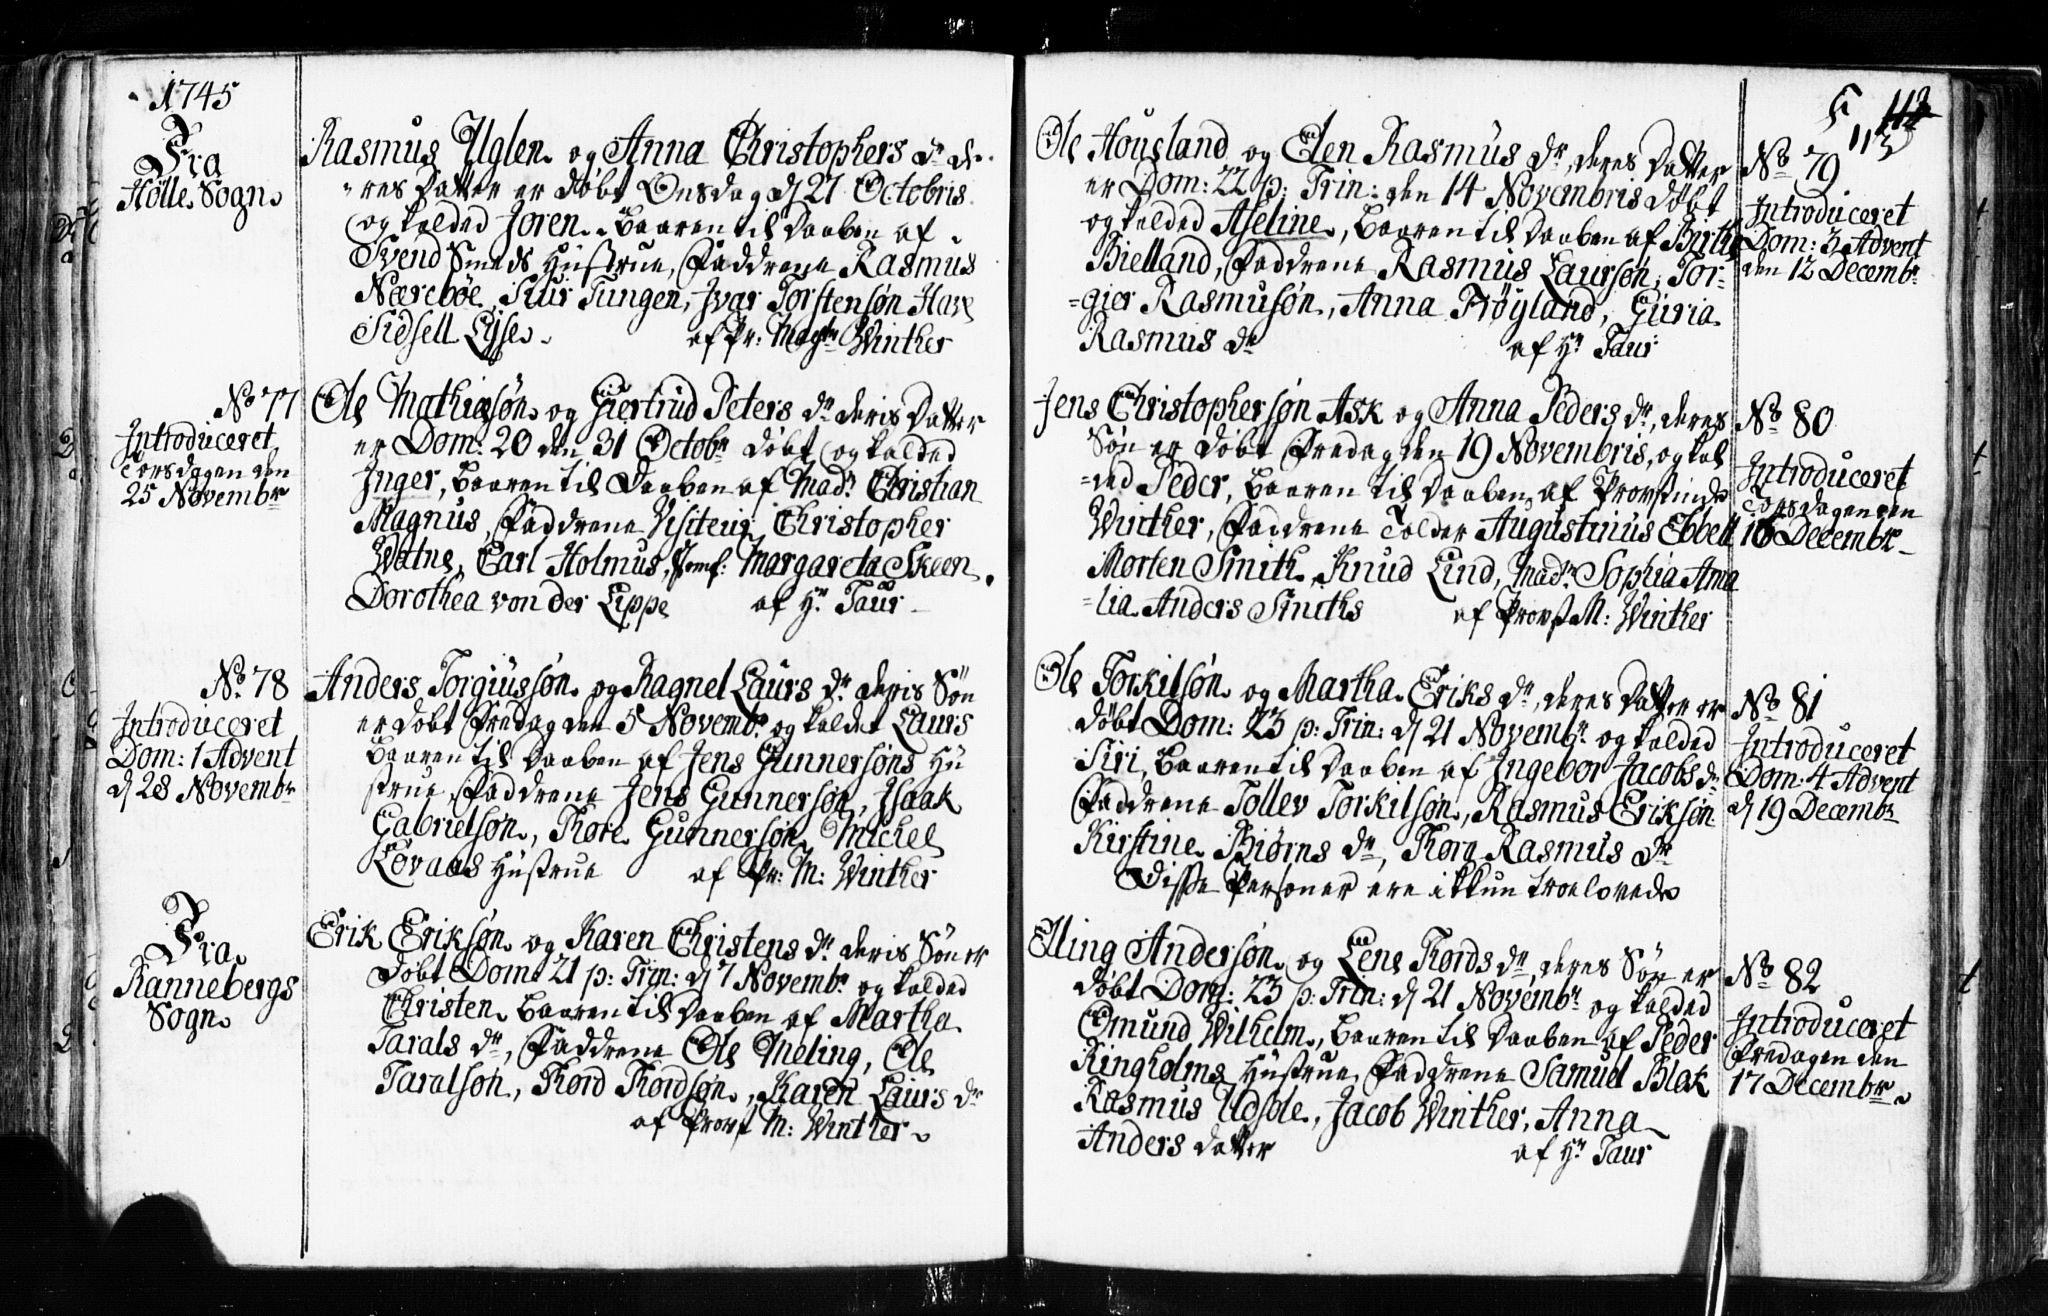 1745
Fra
Hölle Sogn
Rasmus Uglen og Anna Christophers dr de-
-res datter er döbt Onsdag d 27 Octobris
og kalded Joren. baaren til daaben af
Svend Smeds Hustrue, Faddrene Rasmus
Næreböe Siur Tungen, Jvar Torstensøn
Sidsell Lyse. af Pr: Magr Winther
No 77
Introduceret
Torsdagen den
25 Novembr
Ole Mathiæsøn og Giertrud Peters dr deris datter
er Dom: 20 den 31 Octobr döbt og kalded
Inger, baaren til Daaben af Madm Christian
Magnus, Faddrene Visiteur Christopher
Watne, Carl Holmus, Jomf: Margareta Skeen
Dorothea von der Lippe af Hr Taur
No 78
Introduceret
Dom: 1 Advent
d 28 Novembr
Anders Torgiussøn og Ragnel Laurs dr deris Søn
er døbt Fredag den 5 Novembr og kaldet Laurs
baaren til Daaben af Jens Gunnersøns Hu
strue, Faddrene Jens Gunnersøn, Isaak
Gabrielsøn, Thore Gunnersøn Michel
Løvaas Hustrue af Pr: M: Winther
Fra
Rannebergs
Sogn
Erik Eriksøn og Karen Christens dr deris Søn er
døbt Dom: 21 p: Trin: d 7 Novembr og kalded
Christen baaren til daaben af Martha
Tarals dr, Faddrene Ole Meling, Ole
Taralsøn, Thord Thordsøn, Karen Laurs dr
af Provst M: Winther
5 112
113
Ole Housland og Elen Rasmus dr, deres Datter
er Dom: 22 p: Trin: den 14 Novembris døbt
og kalded Aseline, baaren til Daaben af Birthe
Bielland, Faddrene Rasmus Laursøn, Tor-
-gier Rasmusøn, Anna Frøyland, Guria
Rasmus dr af Hr Taur
No 79
Introduceret
Dom: 3 Advent
den 12 Decembr
Jens Christophersøn Ask og Anna Peders dr, deres
Søn er døbt Fredag den 19 Novembris, og kal
-ded Peder, baaren til Daaben af Provstinde
Winther, Faddrene Tolder Augustinus Ebbell
Morten Smith, Knud Lind, Madm Sophia Ama
-lia Anders Smiths af Provst M: Winther
No 80
Introduceret
Torsdagen den
16 Decembr
Ole Torkilsøn og Martha Eriks dr, deres Datter er
døbt Dom: 23 p: Trin: d 21 Novembr og kalded
Siri, baaren til daaben af Ingebor Jacobs dr
Faddrene Tollev Torkilsøn, Rasmus Eriksøn
Kirstine Biørns dr, Thora Rasmus dr
Disse Personer ere ikkun troelovede
No 81
Introduceret
Dom: 4 Advent
d 19 Decembr
Elling Andersøn og Lene Thords dr, deres Søn er
døbt Dom: 23 p: Trin: d 21 Novembr og kalded
Omund Wilhelm, baaren til Daaben af Peder
Ringholms Hustrue, Faddrene Samuel Blak
Rasmus Udsole, Jacob Winther, Anna
Anders datter af Hr Taur
No 82
Introduceret
Fredagen den
17 Decembr